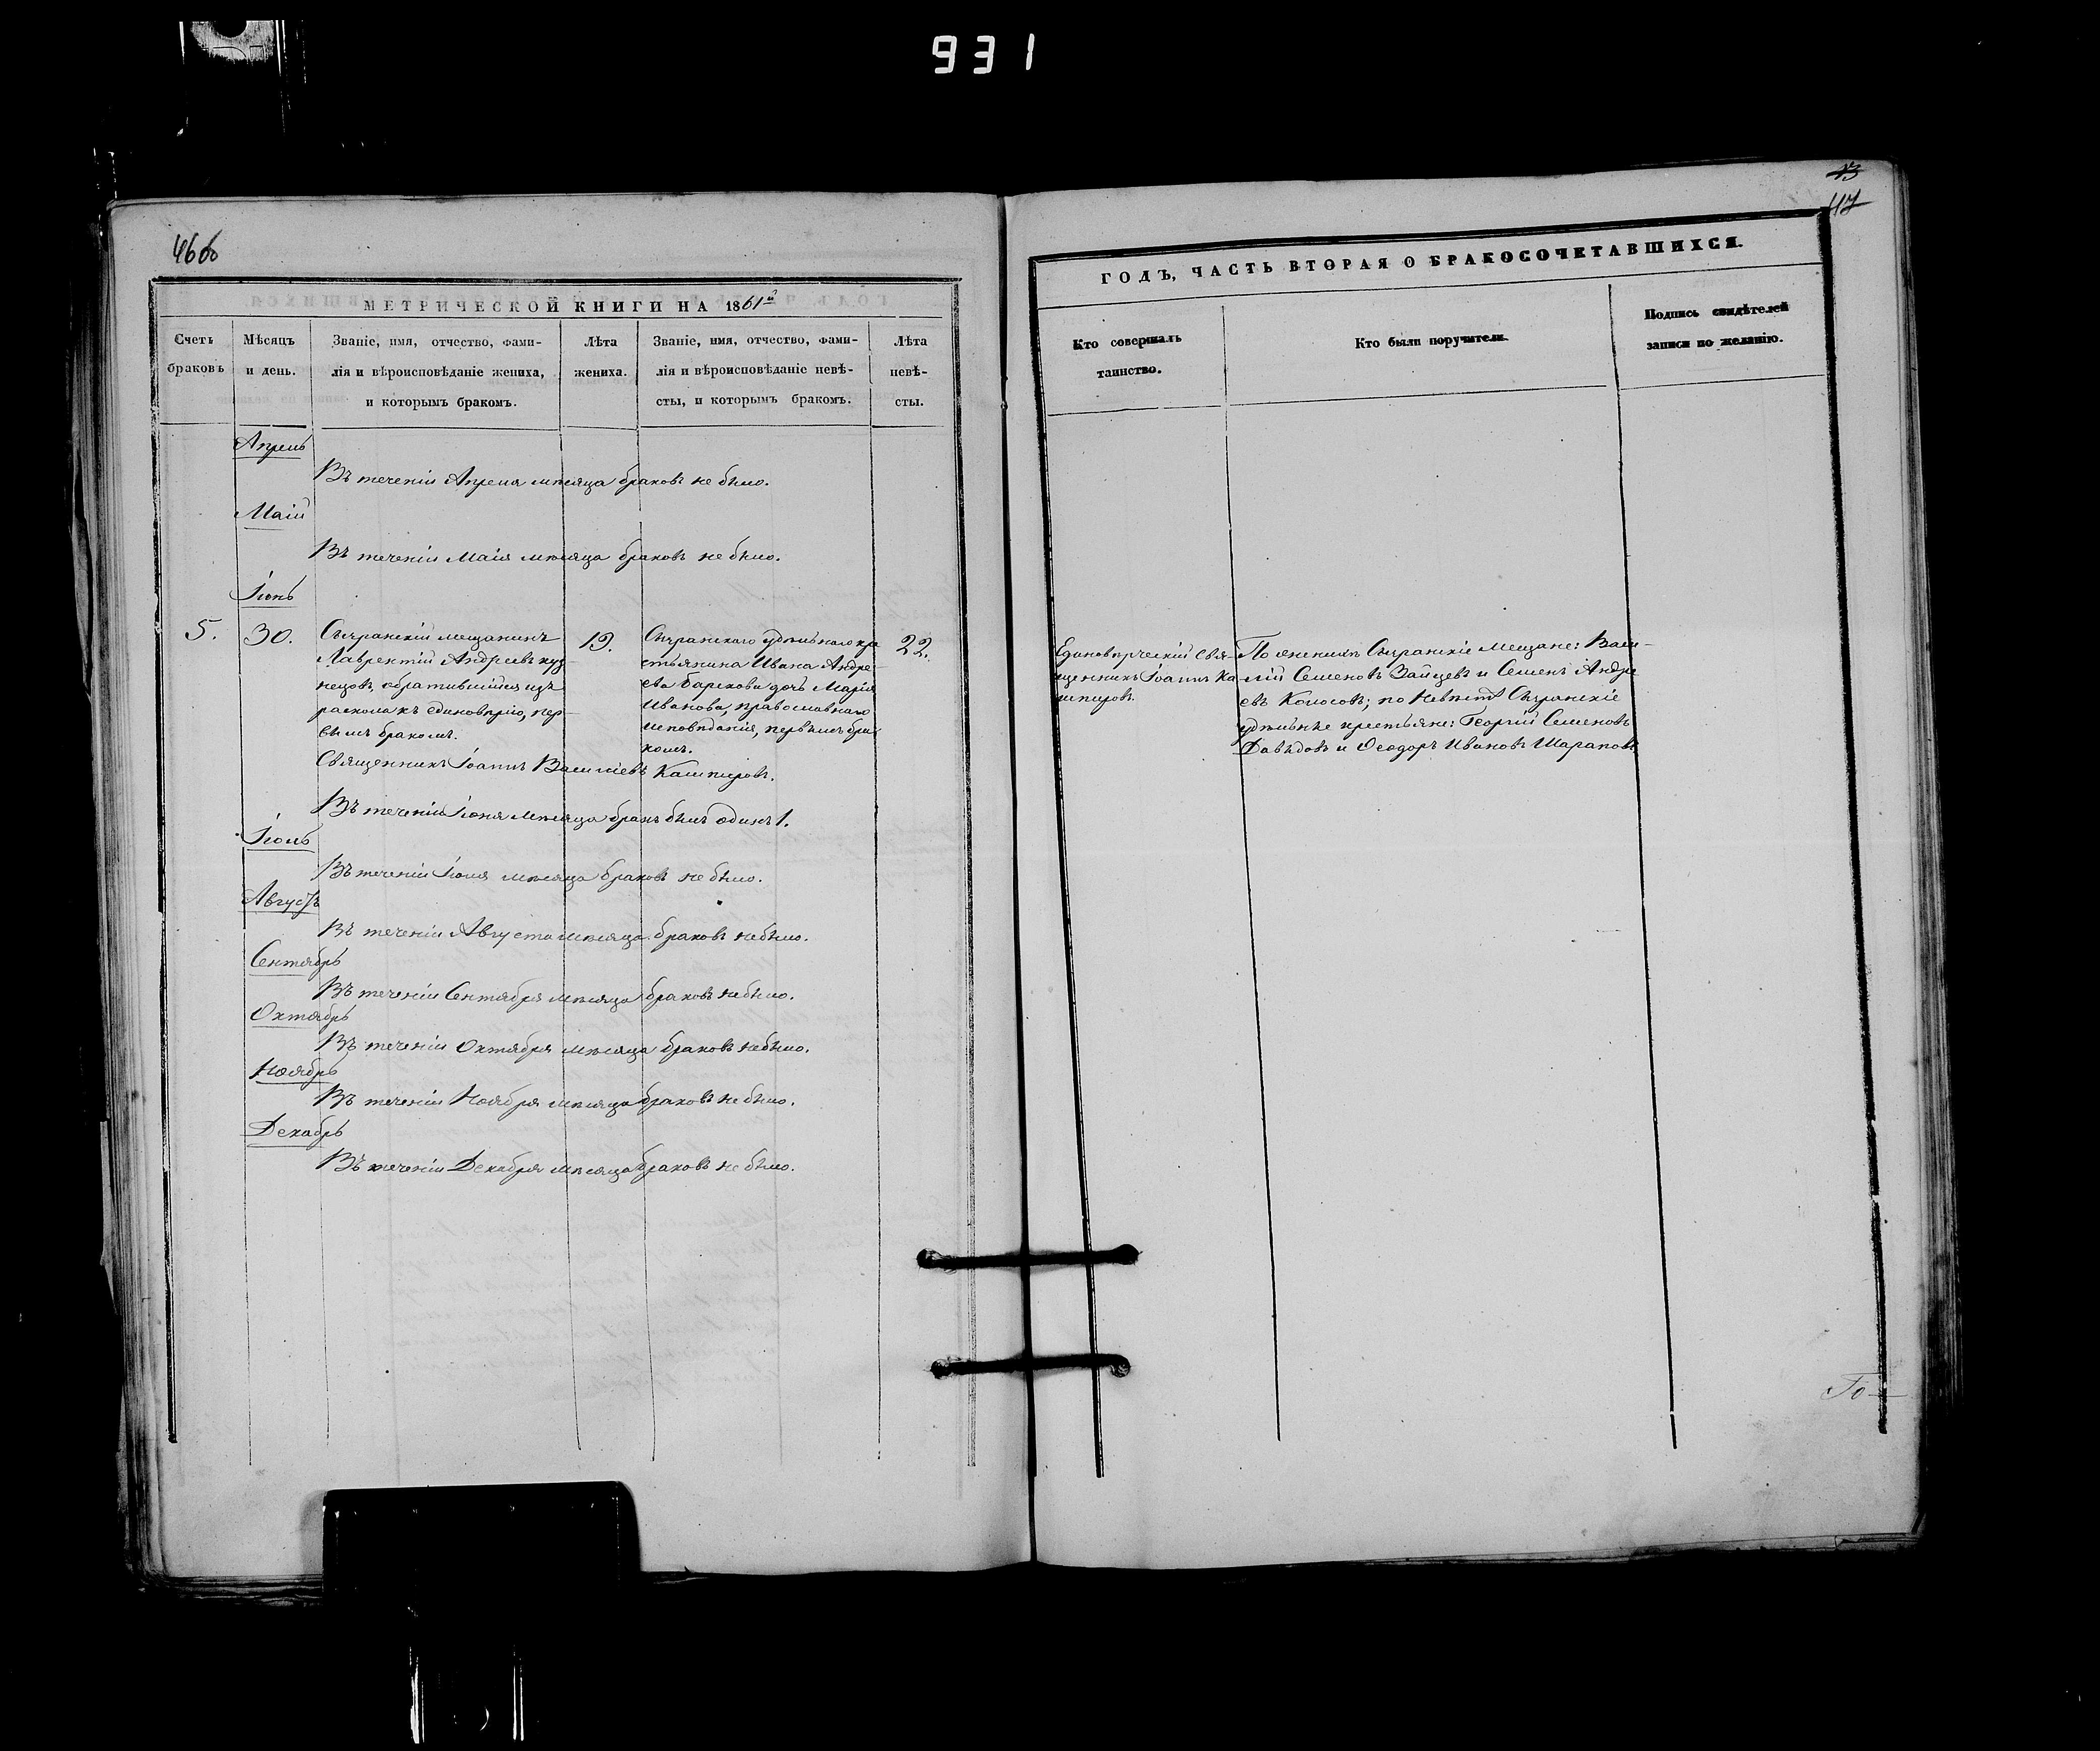 931
466
МЕТРИЧЕСКОЙ КНИГИ НА 1861й
Счетъ браковъ
Мѣсяцъ и день.
Званіе, имя, отчество, фами-
лія и вѣроисповѣданіе жениха,
и которымъ бракомъ.
Лѣта жениха.
Званіе, имя, отчество, фами-
лія и вѣроисповѣданіе невѣ-
сты, и которымъ бракомъ.
Лѣта невѣ-
сты.
Апрель
Въ теченіи Апреля мѣсяца браковъ не было.
Маій
Въ теченіи Маія мѣсяца браковъ не было.
Іюнь
5.
30.
Сызранскій мещанинъ
Лаврентій Андреевъ куз-
нецовъ, обратившійся изъ
раскола къ единовѣрію, пер-
вымъ бракомъ.
19.
Сызранскаго удѣльнаго кре
стьянина Ивана Андре-
ева дочь Марія
Иванова, православнаго
исповѣданія, первымъ бра
комъ.
22.
Священникъ Іоаннъ Васильевъ Кашпировъ.
Въ теченіи Іюня мѣсяца бракъ былъ одинъ 1.
Іюль
Въ теченіи Іюля мѣсяца браковъ не было.
Августъ
Въ теченіи Августа мѣсяца браковъ небыло.
Сентябрь
Въ теченіи Сентября мѣсяца браковъ небыло.
Октябрь
Въ теченіи Октября мѣсяца браковъ небыло.
Ноябрь
Въ теченіи Ноября мѣсяца браковъ не было.
Декабрь
Въ теченіи Декабря мѣсяца браковъ не было.
117
ГОДЪ, ЧАСТЬ ВТОРАЯ О БРАКОСОЧЕТАВШИХСЯ.
Кто совершалъ
таинство.
Кто были поручители.
Подпись свидѣтелей
записи по желанію.
Единовѣрческій свя-
щенникъ Іоаннъ Ка
шпировъ.
По женихѣ Сызранскіе мещане: Васи-
лій Семеновъ Зайцевъ и Семенъ Андре
евъ Колосовъ; по Невѣстѣ Сызранскіе
удѣльные крестьяне: Георгій Семеновъ
Давыдовъ и Ѳеодоръ Ивановъ Шараповъ